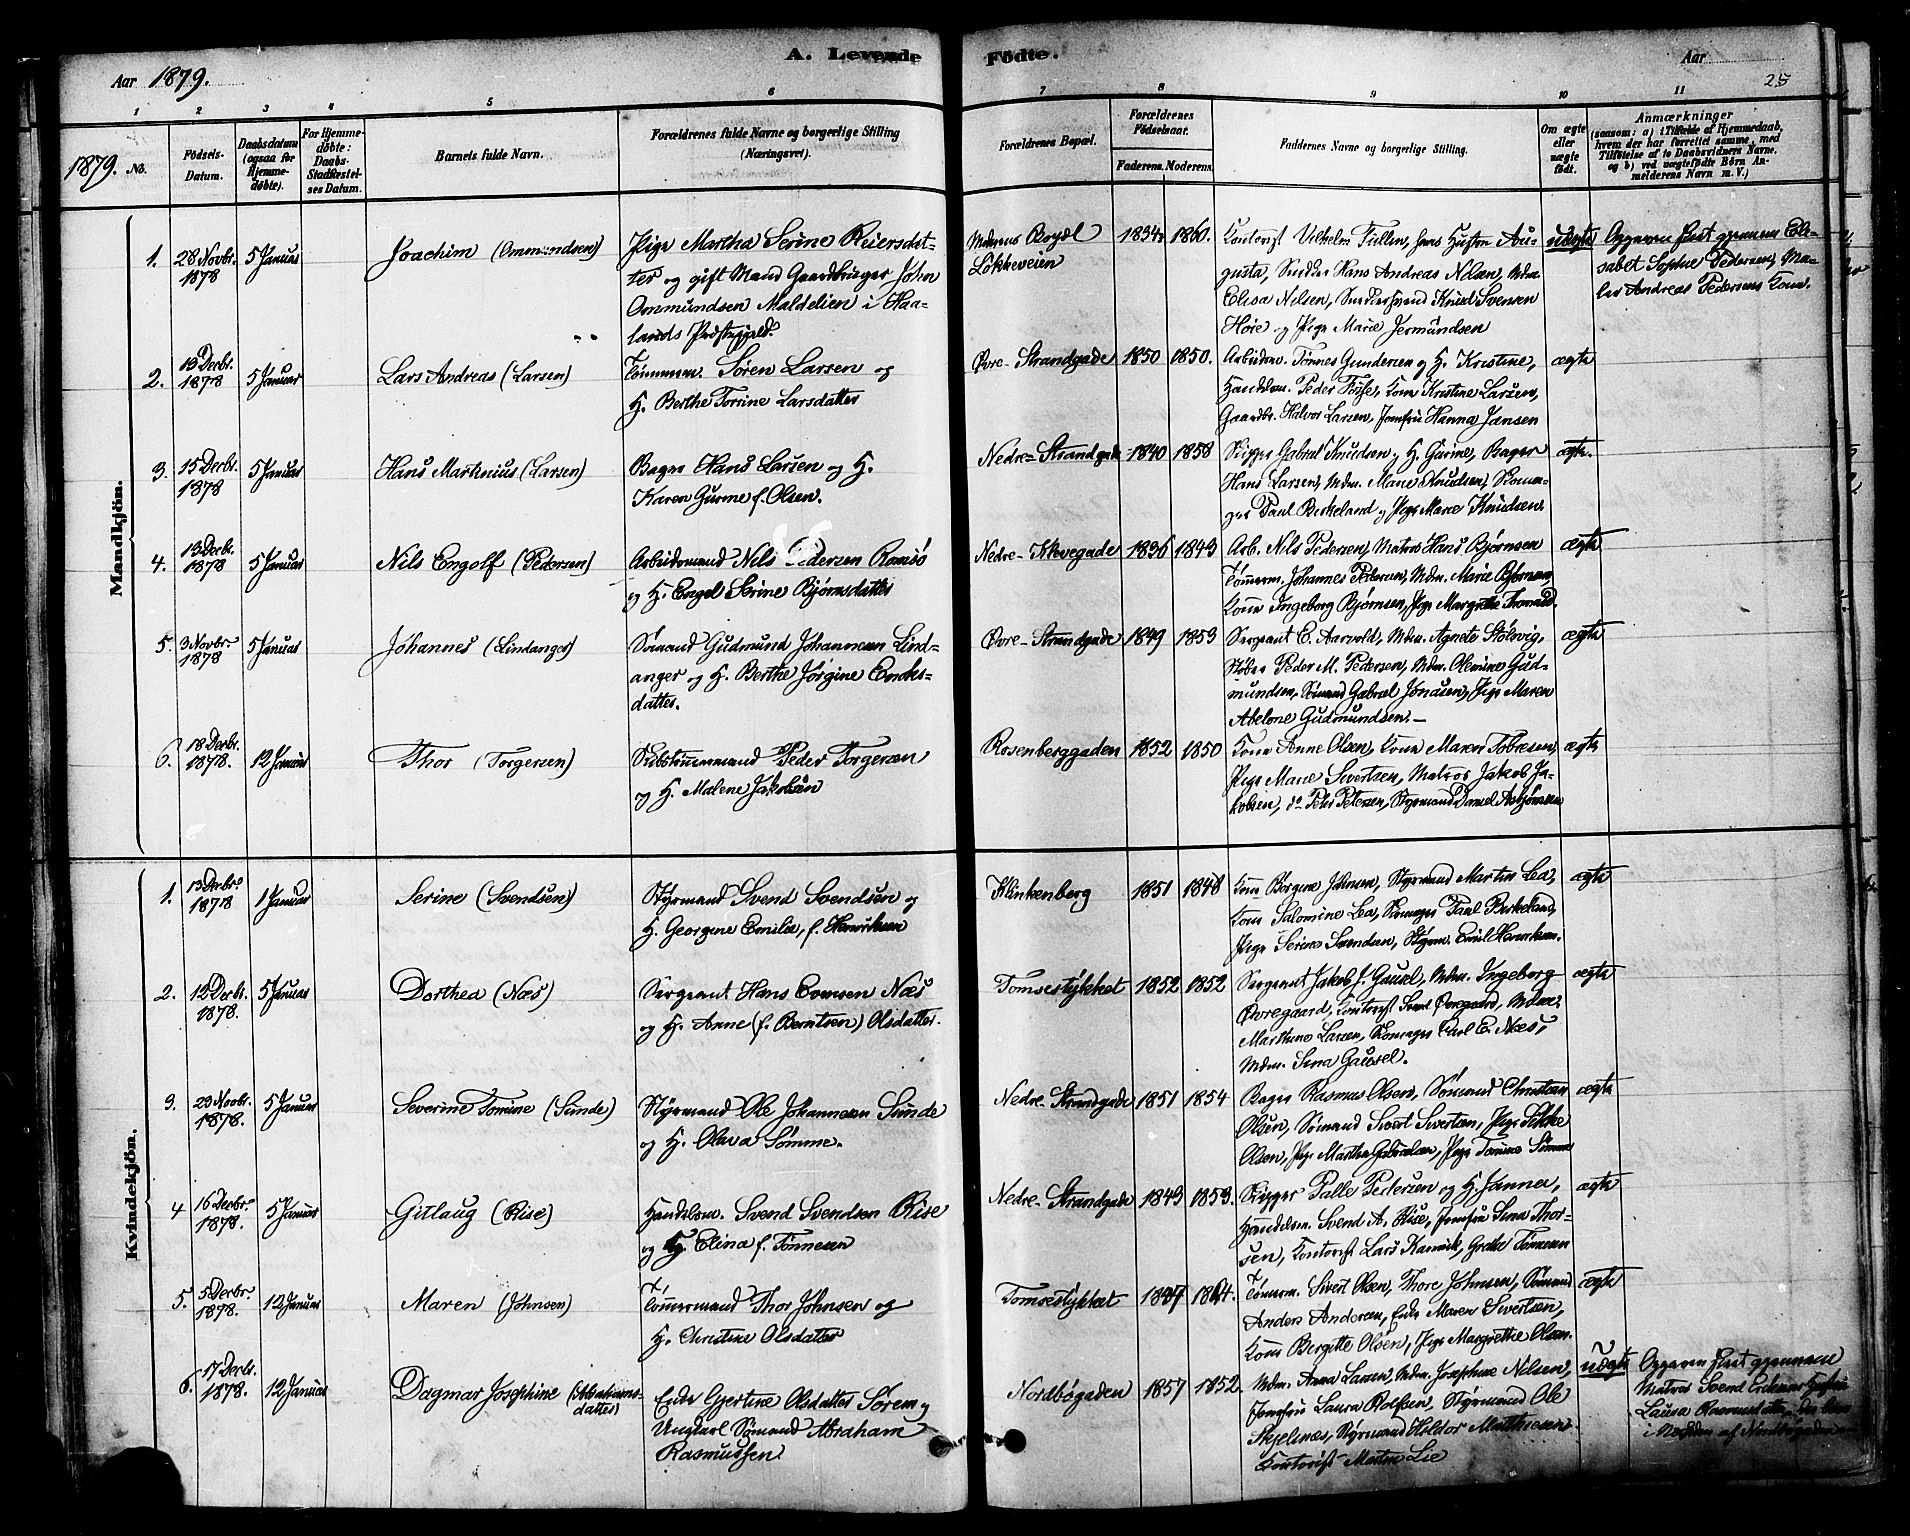 A. Levende Födte.
Aar 1879. Aar
25
1 2 3 4 5 6 7 8 9 10 11
1879. No.
Födsels-Datum.
Daabsdatum (ogsaa for Hjemmedöbte).
For Hjemmedöbte: Daabs-Stadfæstelses Datum.
Barnets fulde Navn.
Forældrenes fulde Navne og borgerlige Stilling (Næringsvei).
Forældrenes Bopæl.
Forældrenes Födselsaar.
Faderens. Moderens.
Faddernes Navne og borgerlige Stilling.
Om ægte eller uægte födt.
Anmærkninger
(saasom: a) i Tilfælde af Hjemmedaab, hvem der har forrettet samme, med Tilföielse af to Daabsvidners Navne. og b) ved uægtefödte Börn Anmelderens Navn m. V.)
Mandkjön.
1. 28 Novbr. 1878 5 Januar Joachim (Ommundsen)
Pige Martha Serine Reiersdatter og gift Mand Gaardbruger John
Ommundsen Maldelien i Haalands Præstegjæld.
Moderens Bopæl Lökkeveien 1834 1860.
Kontorist Vilhelm Tullen, hans Hustru Augusta, Smed Hans Andreas Nilsen, Mdm.
Elisa Nilsen, Smedsvend Knud Svensen
Höie og Pige Marie Jermundsen
uægte
Opgaven sket gjennem Elisabet Sophie Pedersen, Maler Andreas Pedersens Kone.
2. 13 Decbr. 1878 5 Januar Lars Andreas (Larsen)
Tömmerm. Sören Larsen og
H. Berthe Torine Larsdatter
Övre Strandgade 1850 1850.
Arbeidsm. Tönnes Gundersen og H. Kristine,
Handelsm. Peder Fosse, Kone Kristine Larsen,
Gaardbr. Halvor Larsen, Jomfru Hanna Jansen
ægte
3. 15 Decbr. 1878 5 Januar Hans Martinius (Larsen)
Bager Hans Larsen og H.
Karen Gurine f. Olsen.
Nedre Strandgade 1840 1858
Skipper Gabriel Knudsen og H. Gurine, Bager
Hans Larsen, Mdm. Marie Knudsen, Skomager Paul Birkeland og Pige Marie Knudsen.
ægte.
4. 13 Decbr. 1878 5 Januar Nils Engolf (Pedersen)
Arbeidsmand Nils Pedersen Ramsö
og H. Engel Serine Bjørnsdatter
Nedre Kleivegade 1836 1843
Arb. Nils Pedersen, Matros Hans Bjørnsen
Tömmerm. Johannes Pedersen, Mdm. Marie Bjørnsen,
Kone Ingeborg Bjørnsen, Pige Margrethe
ægte
5. 3 Novbr. 1878 5 Januar Johannes (Lindanger)
Sømand Gudmund Johannesen Lindanger og H. Berthe Jörgine Endresdatter.
Övre Strandgade 1849 1853
Sergeant E. Aarvold, Mdm. Agnete Stölsvig,
Støber Peder M. Pedersen, Mdm. Olemine Gudmundsen, Sømand Gabriel Jonasen, Pige Maren
Abelone Gudmundsen.
ægte
6. 18 Decbr. 1878. 12 Januar Thor (Torgersen)
Peder Torgersen
og H. Malene Jakobsen
Rosenberggaden 1852 1850
Kone Anne Olsen, Kone Maren Tobiesen,
Pige Marie Sivertsen, Matros Jakob Jakobsen, do Peder Petersen, Styrmand Daniel Asbjörnsen
ægte
Kvindekjön.
1. 13 Decbr. 1878 1 Januar Serine (Svendsen)
Styrmand Svend Svendsen og
H. Georgine Emilie, f. Henriksen
Blinkenberg 1851 1848
Kone Börgine Johnsen, Styrmand Martin Lea,
Kone Salomine Lea, Skomager Paul Birkeland,
Pige Serine Svendsen, Styrm. Emil Henriksen.
ægte
2. 12 Decbr. 1878. 5 Januar Dorthea (Næs)
Sergeant Hans Evensen Næs
og H. Anne (f. Berntsen) Olsdatter.
Tomsestykket 1852 1852
Sergeant Jakob J. Gausel, Mdm. Ingeborg
Øvregaard, Kontorist Svend Øvregaard, Mdm.
Marthine Larsen, Skomager Carl E. Næs,
Mdm. Sina Gausel.
ægte
3. 29 Novbr. 1878. 5 Januar Severine Tomine (Sunde)
Styrmand Ole Johannesen Sunde
og H. Olava Sømme.
Nedre Strandgade 1851 1854
Bager Rasmus Olsen, Sømand Christian
Olsen, Sømand Sivert Sivertsen, Pige Sikke
Olsen, Pige Martha Gabrielsen, Pige Tomine Sömme
ægte
4 16 Decbr. 1878. 5 Januar Gitlaug (Rise)
Handelsm. Svend Svendsen Rise
og H. Elina f. Tönnesen
Nedre Strandgade 1843 1853.
Skipper Palle Pedersen og H. Janna,
Handelsm. Svend A. Rise, Jomfru Sina Thorsen, Kontorist Lars Kannik, Grethe Tönnesen
ægte
5. 5 Decbr. 1878. 12 Januar Maren (Johnsen)
Tömmermand Thor Johnsen og
H. Christine Olsdatter
Tomsestykket 1847 1844.
Tömmerm. Sivert Olsen, Thore Johnsen, Sømand
Anders Andersen, Enke Maren Sivertsen,
Kone Bergitte Olsen, Pige Margrethe Olsen.
ægte
6. 17 Decbr. 1878. 12 Januar Dagmar Josephine (Abrahamsdatter)
Enke Gjertine Olsdatter Sörem og
Ungkarl Sømand Abraham
Rasmussen
Nordbögaden 1857 1852.
Mdm. Anna Larsen, Mdm. Josephine Nilsen,
Jomfru Laura Rolfsen, Styrmand Ole
Skjelnæs, Styrmand Heldor Mathiesen.
Kontorist Morten Lie
uægte
Opgaven sket gjennem
Matros Svend Eriksens Hustru
Laura Rasmusdatter, der bor
i Nordbögaden